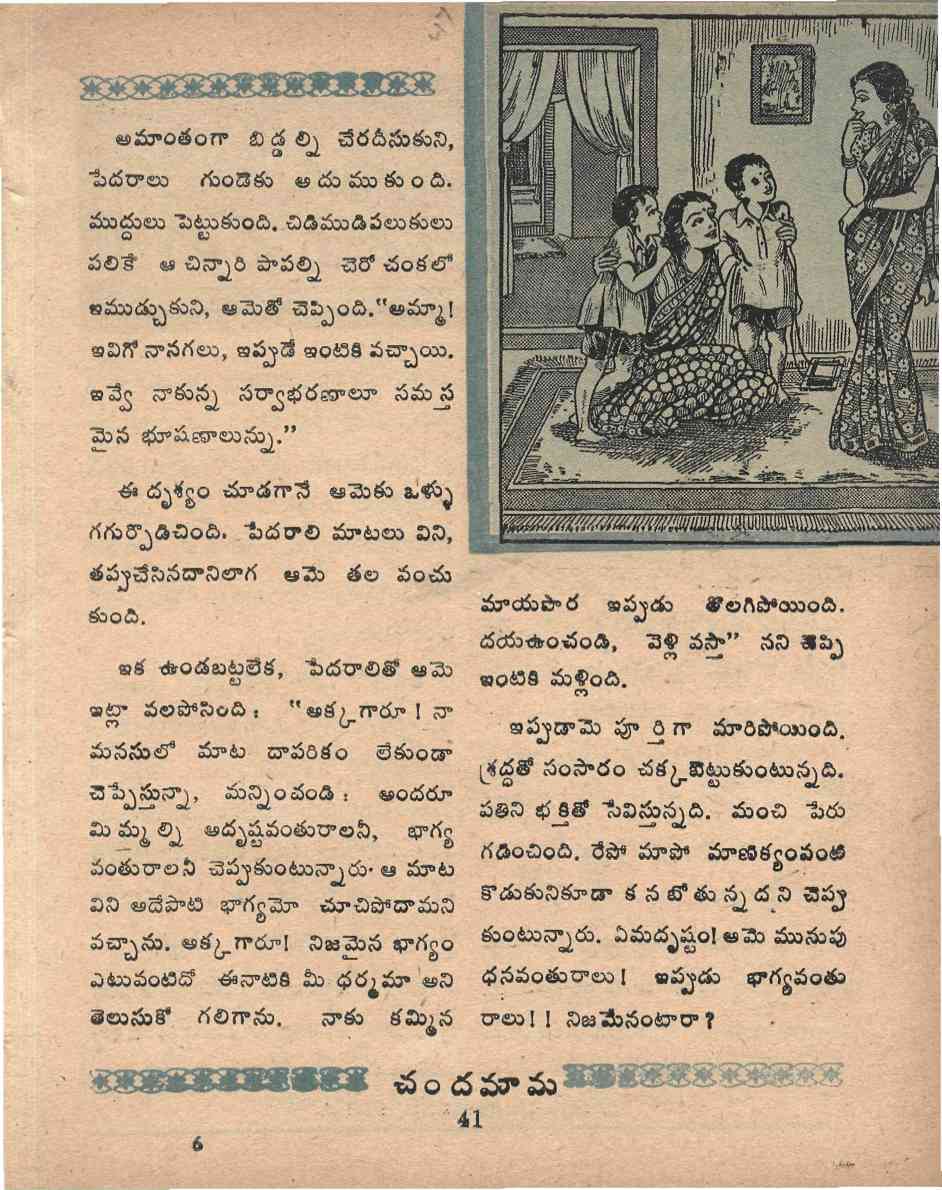 అమాంతంగా బిడ్డల్ని చేరదీసుకుని,
పేదరాలు గుండెకు అదుముకుంది.
ముద్దులు పెట్టుకుంది. చిడిముడిపలుకులు
పలికే ఆ చిన్నారి పాపల్ని చెరో చంకలో
ఇముడ్చుకుని, ఆమెతో చెప్పింది. "అమ్మా!
ఇవిగో నానగలు, ఇప్పుడే ఇంటికి వచ్చాయి.
ఇవ్వే నాకున్న సర్వాభరణాలూ సమస్త
మైన భూషణాలున్ను."
ఈ దృశ్యం చూడగానే ఆమెకు ఒళ్ళు
గగుర్పొడిచింది. పేదరాలి మాటలు విని,
తప్పుచేసినదానిలాగ ఆమె తల వంచు
కుంది.
ఇక ఉండబట్టలేక, పేదరాలితో ఆమె
ఇట్లా వలపోసింది: "అక్కగారూ! నా
మనసులో మాట దాపరికం లేకుండా
చెప్పేస్తున్నా, మన్నించండి: అందరూ
మిమ్మల్ని అదృష్టవంతురాలనీ, భాగ్య
వంతురాలనీ చెప్పుకుంటున్నారు. ఆ మాట
విని అదేపాటి భాగ్యమో చూచిపోదామని
వచ్చాను. అక్కగారూ! నిజమైన భాగ్యం
ఎటువంటిదో ఈనాటికి మీ ధర్మమా అని
తెలుసుకో గలిగాను. నాకు కమ్మిన
మాయపొర ఇప్పుడు తొలగిపోయింది.
దయఉంచండి, వెళ్లివస్తా" నని చెప్పి
ఇంటికి మళ్లింది.
ఇప్పుడామె పూర్తిగా మారిపోయింది.
శ్రద్ధతో సంసారం చక్కబెట్టుకుంటున్నది.
పతిని భక్తితో సేవిస్తున్నది. మంచి పేరు
గడించింది. రేపో మాపో మాణిక్యంవంటి
కొడుకునికూడా కనబోతున్నదని చెప్పు
కుంటున్నారు. ఏమదృష్టం! ఆమె మునుపు
ధనవంతురాలు! ఇప్పుడు భాగ్యవంతు
రాలు!! నిజమేనంటారా?
చందమామ
41
6